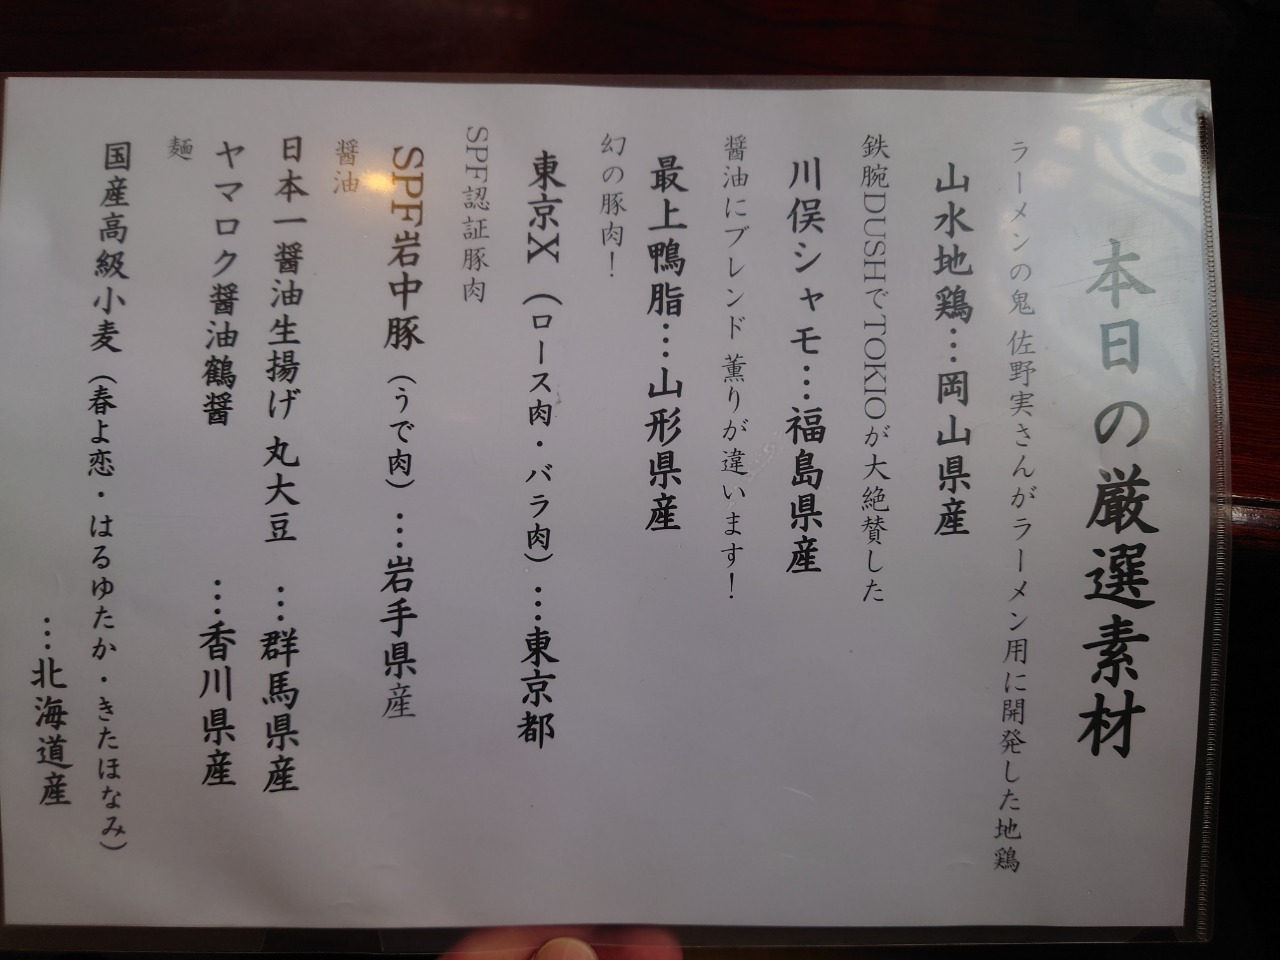 本日の厳選素材
ラーメンの鬼 佐野実さんがラーメン用に開発した地鶏
山水地鶏…岡山県産
鉄腕DUSHでTOKIOが大絶賛した
川俣シャモ…福島県産
醤油にブレンド 薫りが違います！
最上鴨脂…山形県産
幻の豚肉！
東京X（ロース肉・バラ肉）…東京都
SPF認証豚肉
SPF岩中豚（うで肉）…岩手県産
醤油
日本一醤油生揚げ 丸大豆 …群馬県産
ヤマロク醤油鶴醤 …香川県産
麺
国産高級小麦（春よ恋・はるゆたか・きたほなみ）
…北海道産